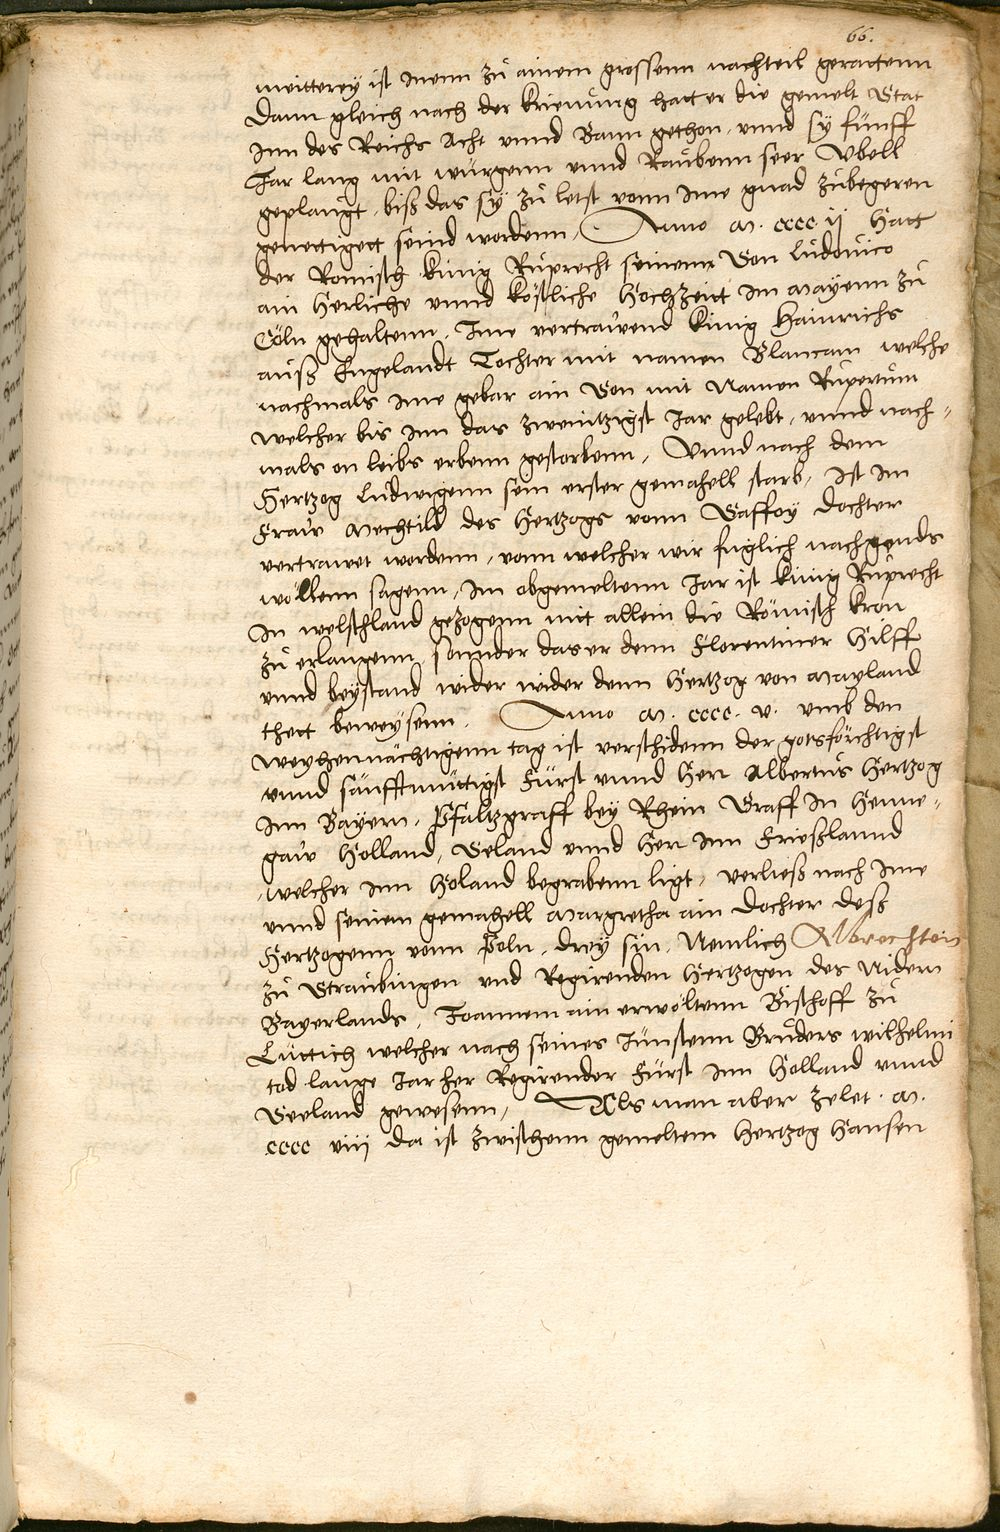 66.
meitterey ist inenn zů ainem grossenn nachteil gerattenn
Dann gleich nach der krienung hatt er die gemelt Stat
Inn des Reichs Acht vnnd Bann gethon, vnnd sy fünff
Jar lang mit würgenn vnnd Raubenn seer Vbell
geplaügt, biß das sy zů letst vonn ime gnad zůbegeren
genettigett seind wordenn, Anno M. cccc. ij Hatt
der Romisch künig Růprecht seinem Son Lůdouico
ain herliche vnnd köstliche hochzeit im Mayenn zů
Cöln gehaltenn, Ime vertrawend künig Hainrichs
auß Engelandt Tochter mit namen Blancam welche
nachmals ime gebar ain Son mit Namen Růpertům
welcher bis inn das zweintzigst Jar gelebt, vnnd nach-
mals on leibs erbenn gestorbenn, Vnnd nach dem
Hertzog Ludwigenn sein erster gemahell starb, ist im
Fraw Mechtild des Hertzogs vonn Saffoy dochter
vertrawet wordenn, vonn welcher wir fuglich nachgends
wöllenn sagenn, Im obgemeltenn Jar ist künig Růprecht
in welschland gezogenn nit allein die Römisch kron
zů erlangenn, sonnder das er denn Florentiner hilff
vnnd beystand wider wider denn Hertzog von Mayland
thett beweysenn. Anno M. cccc. v. vmb den
weyhennächtigenn tag ist verschidenn der gotsförchtigst
vnnd säufftmüttigst Fürst vnnd Herr Albertus Hertzog
inn Bayern, Pfaltzgraff bey Rhein Graff in Henne-
gaw Holland, Seland vnnd Her inn Frießlannd
welcher inn Holand begrabenn ligt, verließ nach ime
vnnd seinem gemahell Margretha ain dochter deß
Hertzogenn vonn Poln, drey sün, Nemlich Albrechten
zů Straubingen vnd Regirenden Hertzogen des Nidern
Bayerlands, Joannem ain erwöltenn Bischoff zů
Lüttich welcher nach seines Jüngstenn Brůders wilhelmi
tod lange Jar her Regirender Fürst inn Holland vnnd
Seeland gewesenn, Als man aber zelet. M.
cccc viij da ist zwischenn gemeltem Hertzog Hansen